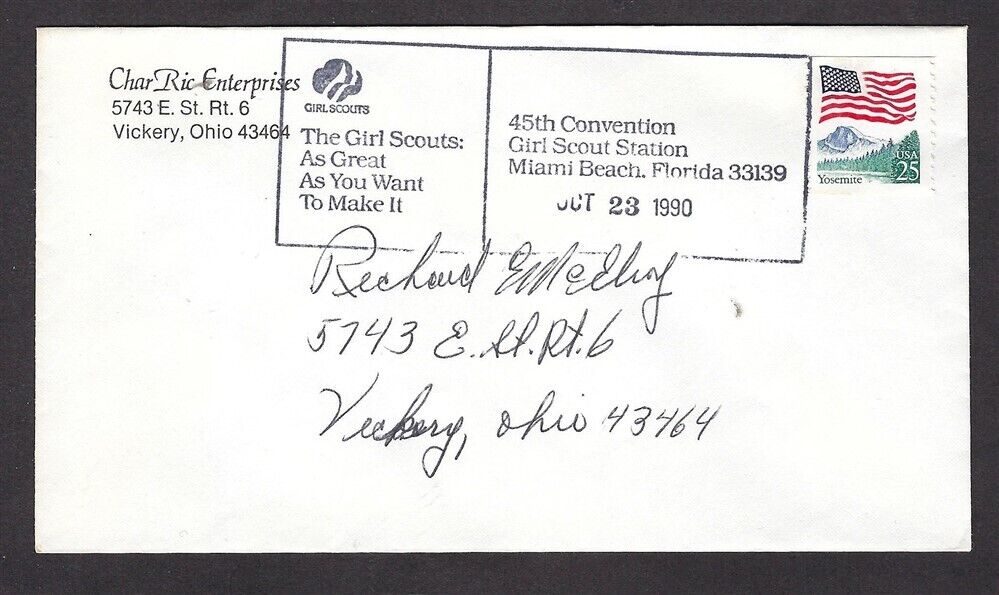 Char Ric Enterprises
5743 E. St. Rt. 6
Vickery, Ohio 43464
GIRL SCOUTS
The Girl Scouts:
As Great
As You Want
To Make It
45th Convention
Girl Scout Station
Miami Beach, Florida 33139
OCT 23 1990
USA
25
Yosemite
Richard E McElroy
5743 E. St. Rt. 6
Vickery, Ohio 43464